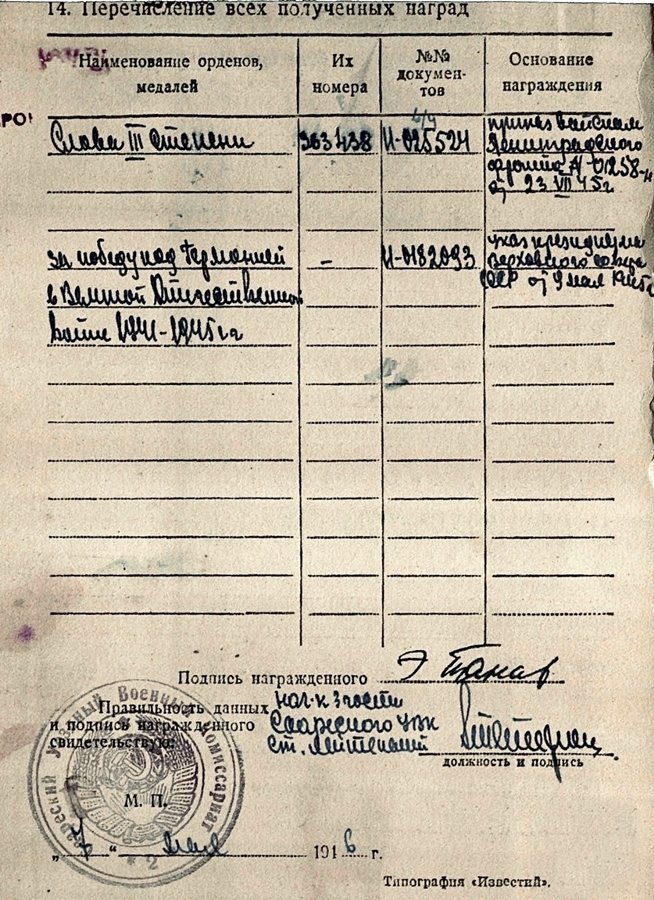 14. Перечисление всех полученных наград
Наименование орденов,
медалей
Их
номера
№№
докумен-
тов
Основание
награждения
Слава III степени
363438
И-025524
приказ войскам
Ленинградского
фронта № 01258-н
от 23 VII 45г
за победу над Германией
в Великой Отечественной
войне 1941-1945гг
-
И-0182093
указ президиума
верховного совета
СССР от 9 мая
Подпись награжденного
Э Танав
Правильность данных
и подпись награжденного
свидетельствую:
нач-к 3 части
Саареского УВК
ст. лейтенант
должность и подпись
Саареский Уездный Военный Комиссариат
М. П.
„7“ мая 1946 г.
Типография «Известий».